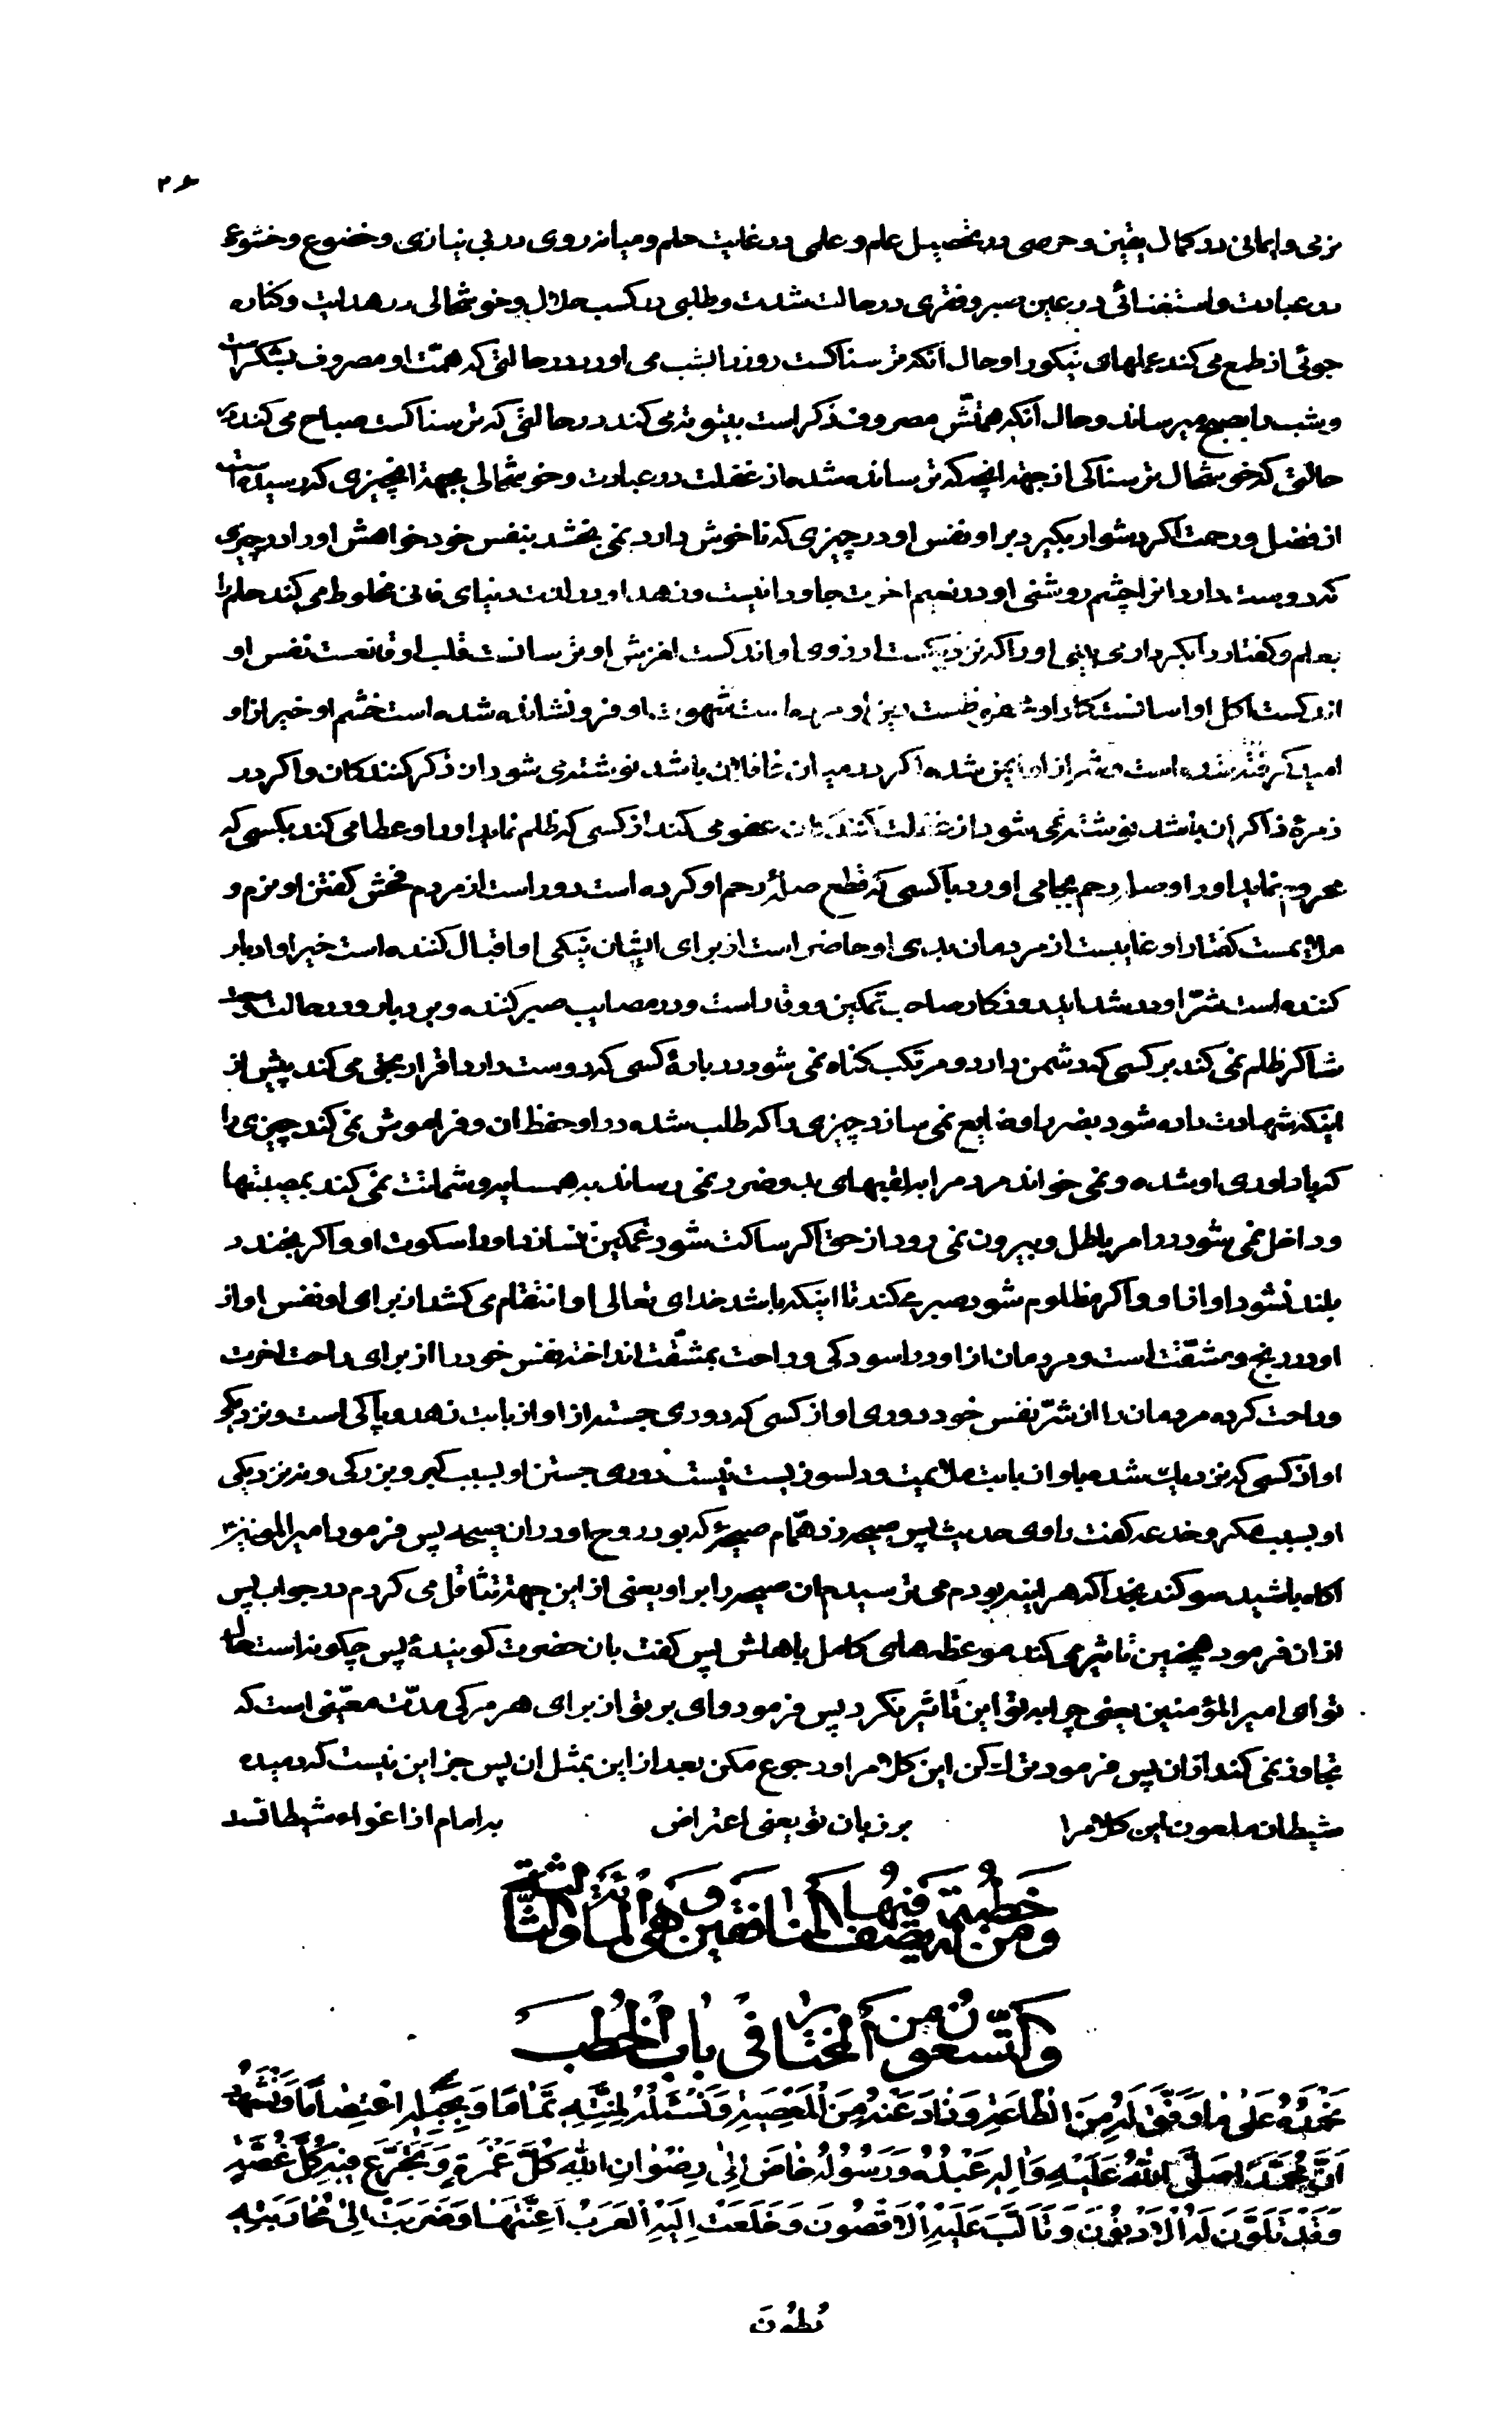 ۲۶
نرمی و ایمانی در کمال یقین و حرصی در تحصیل علم و علمی در غایت حلم و میانه روی در بی نیازی و خضوع و خشوع
در عبادت و استغنائی در عین صبر و فقری در حالت شدت و طلبی در کسب حلال و خوشحالی در هدایت و کناره
جوئی از طمع می کند عملهای نیکو را و حال آنکه ترسناکست روز را بشب می اورد در حالتی که همّت او مصروف بشکر است
و شب را بصبح میرساند و حال آنکه همّتش مصروف ذکر است بیتوته می کند در حالتی که ترسناکست صباح می کند در
حالتی که خوشحال ترسناکی از جهة انچه که ترسانده شده از غفلت در عبادت و خوشحالی بجهة انچیزی که رسیده است
از فضل و رحمت اکر دشوار بکیرد بر او نفس او در چیزی که ناخوش دارد نمی بخشد بنفس خود خواهش او را در چیزی
که دوست دارد انرا چشم روشنی او در نعیم اخرت جاودانیست و زهد او در لذت دنیای فانی مخلوط می کند حلم را
بعلم و کفتار را بکردار می بینی او را که نزدیکست ارزوی او اندکست لغزش او ترسانست قلب او قانعست نفس او
اندکست اکل او اسانست کار او محفوظست دین او مرده است شهوت او فرو نشانده شده است خشم او خیر از او
امید گرفته شده است و شر از او ایمن شده اکر در میان غافلان باشد نوشته می شود از ذکر کنندکان و اکر در
زمرهٔ ذاکران باشد نوشته نمی شود از غفلت کنندکان عفو می کند از کسی که ظلم نماید او را و عطا می کند بکسی که
محروم نماید او را و صلهٔ رحم بجا می اورد با کسی که قطع صلهٔ رحم او کرده است دور است از مردم فحش کفتن او نرم و
ملایمست کفتار او غایبست از مردمان بدی او حاضر است از برای ایشان نیکی او اقبال کننده است خیر او ادبار
کننده است شرّ او در شداید روزکار صاحب تمکین و وقار است و در مصایب صبر کننده و بردبار و در حالت وسعت
شاکر ظلم نمی کند بر کسی که دشمن دارد و مرتکب کناه نمی شود در بارهٔ کسی که دوست دارد اقرار بحق می کند پیش از
اینکه شهادت داده شود بضرر او ضایع نمی سازد چیزی را که طلب شده در او حفظ ان و فراموش نمی کند چیزی را
که یاداوری او شده و نمی خواند مردم را بلقبهای بد و ضرر نمی رساند بهمسایه و شماتت نمی کند بمصیبتها
و داخل نمی شود در امر باطل و بیرون نمی رود از حق اکر ساکت شود غمکین نسازد او را سکوت او و اکر بخندد
بلند نشود اواز او و اکر مظلوم شود صبر می کند تا اینکه باشد خدای تعالی او انتقام می کشد از برای او نفس او از
او در رنج و مشقّت است و مردمان از او در اسودکی و راحت بمشقّت انداخته نفس خود را از برای راحت اخرت
و راحت کرده مردمان را از شرّ نفس خود دوری او از کسی که دوری جسته از او از بابت زهد و پاکی است و نزدیکی
او از کسی که نزدیک شده باو از بابت ملایمت و دلسوزیست نیست دوری جستن او بسبب کبر و بزرکی و نه نزدیکی
او بسبب مکر و خدعه کفت راوی حدیث پس صیحه زد همّام صیحهٔ که بود روح او در ان صیحه پس فرمود امیرالمؤمنین
اکاه باشید سوکند بخدا که هر اینه بودم می ترسیدم ان صیحه را بر او یعنی از این جهة تثاقل می کردم در جواب پس
از ان فرمود همچنین تاثیر می کند موعظه های کامل باهلش پس کفت بان حضرت کویندهٔ پس چکونه است حال
تو ای امیر المؤمنین یعنی چرا بتو این تاثیر نکرد پس فرمود وای بر تو از برای هر مرکی مدّت معیّنی است که
تجاوز نمی کند از ان پس فرمود ترک کن این کلام را و رجوع مکن بعد از این بمثل ان پس جز این نیست که دمیده
شیطان ملعون این کلام را بر زبان تو یعنی اعتراض بر امام از اغواء شیطانند
وَمِن خُطْبَةٍ لَهُ يَصِفُ فِيهَا الْمُنَافِقِينَ وَهِيَ الْمِائَةُ وَالثَّالِثَةُ
وَالتِّسْعُونَ مِنَ الْمُخْتَارِ فِي بَابِ الْخُطَبِ
نَحْمَدُهُ عَلَى مَا وَفَّقَ لَهُ مِنَ الطَّاعَةِ وَذَادَ عَنْهُ مِنَ الْمَعْصِيَةِ وَنَسْئَلُهُ لِمِنَّتِهِ تَمَامًا وَبِحَبْلِهِ اعْتِصَامًا وَنَشْهَدُ
اَنَّ مُحَمَّدًا صَلَّى اللّٰهُ عَلَيْهِ وَاٰلِهِ عَبْدُهُ وَرَسُولُهُ خَاضَ اِلٰى رِضْوَانِ اللّٰهِ كُلَّ غَمْرَةٍ وَتَجَرَّعَ فِيهِ كُلَّ غُصَّةٍ
وَقَدْ تَلَوَّنَ لَهُ الْاَدْنَوْنَ وَتَاَلَّبَ عَلَيْهِ الْاَقْصَوْنَ وَخَلَعَتْ اِلَيْهِ الْعَرَبُ اَعِنَّتَهَا وَضَرَبَتْ اِلٰى مُحَارَبَتِهِ
بُطُونَ